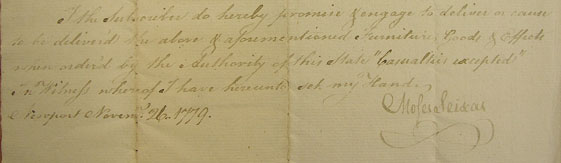 I the Subscriber do hereby promise & engage to deliver or cause
to be deliver'd the above & aforementioned Furniture, Goods & Effects
when order'd by the Authority of this State "Casualties excepted"
In Witness whereof I have hereunto set my Hand.
Newport Novem.r 26. 1779.
Moses Seixas